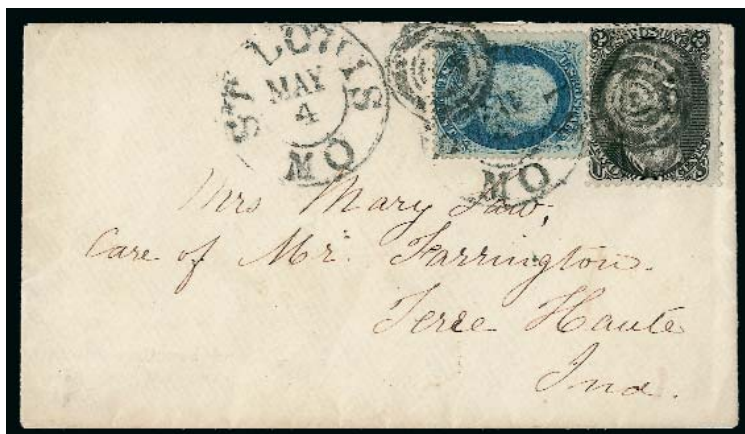 ST LOUIS
MAY
4
MO
MO
Mrs Mary Law,
Care of Mr. Farrington.
Terre Haute
Ind.